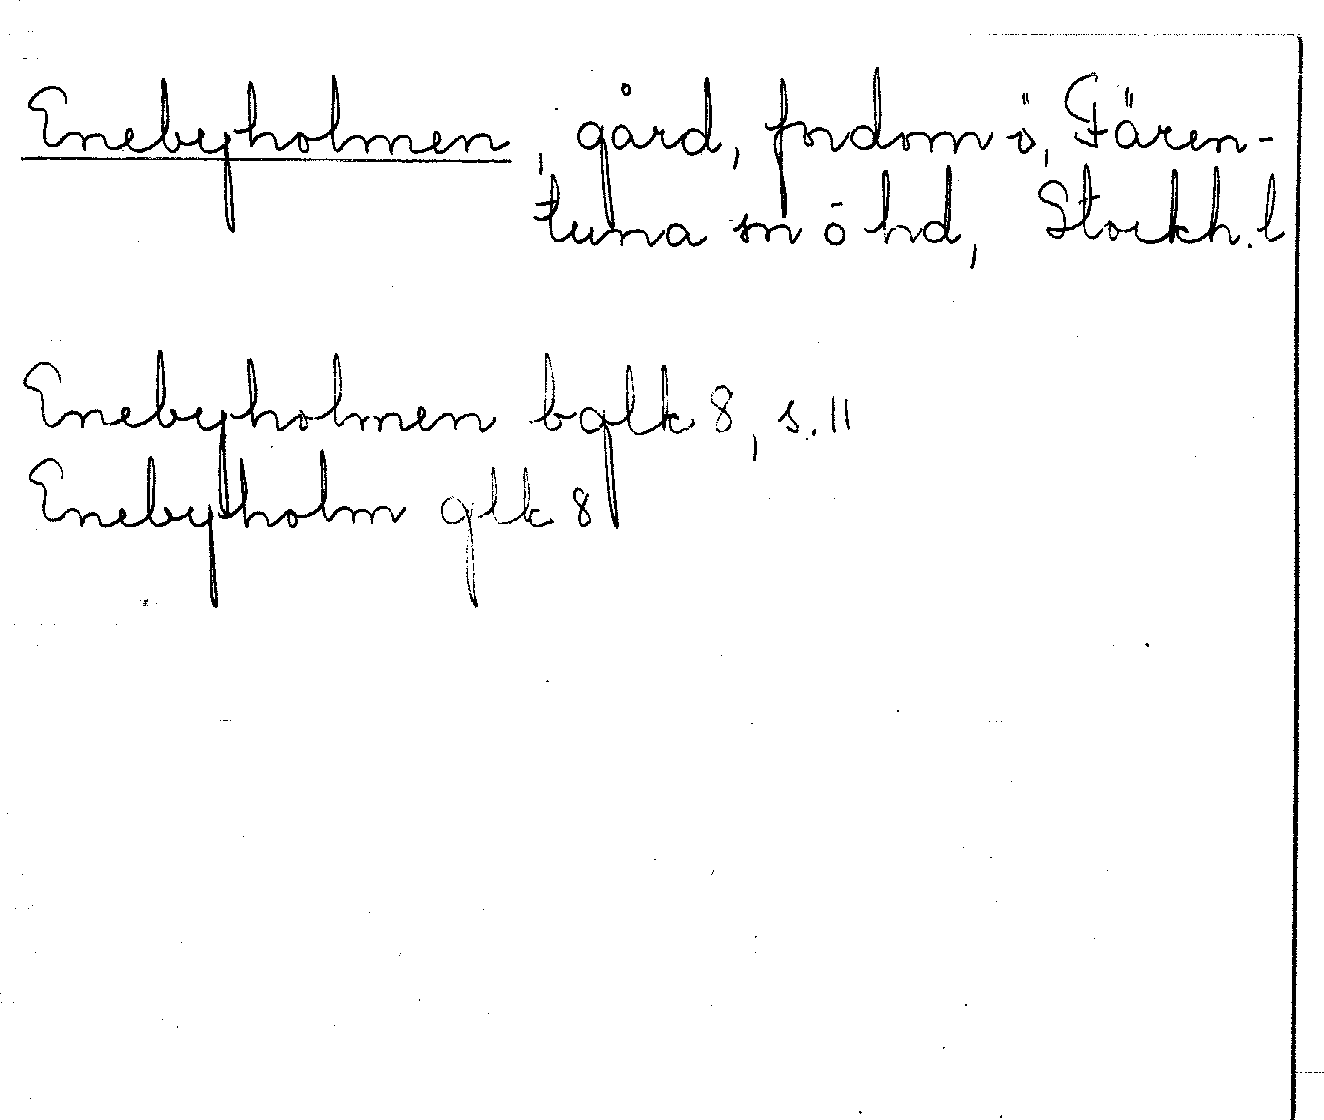 Enebyholmen, gård, fordom ö, Fären-
tuna sn ō hd, Stockh. l
Enebyholmen bglk 8, s. 11
Enebyholm glk 8